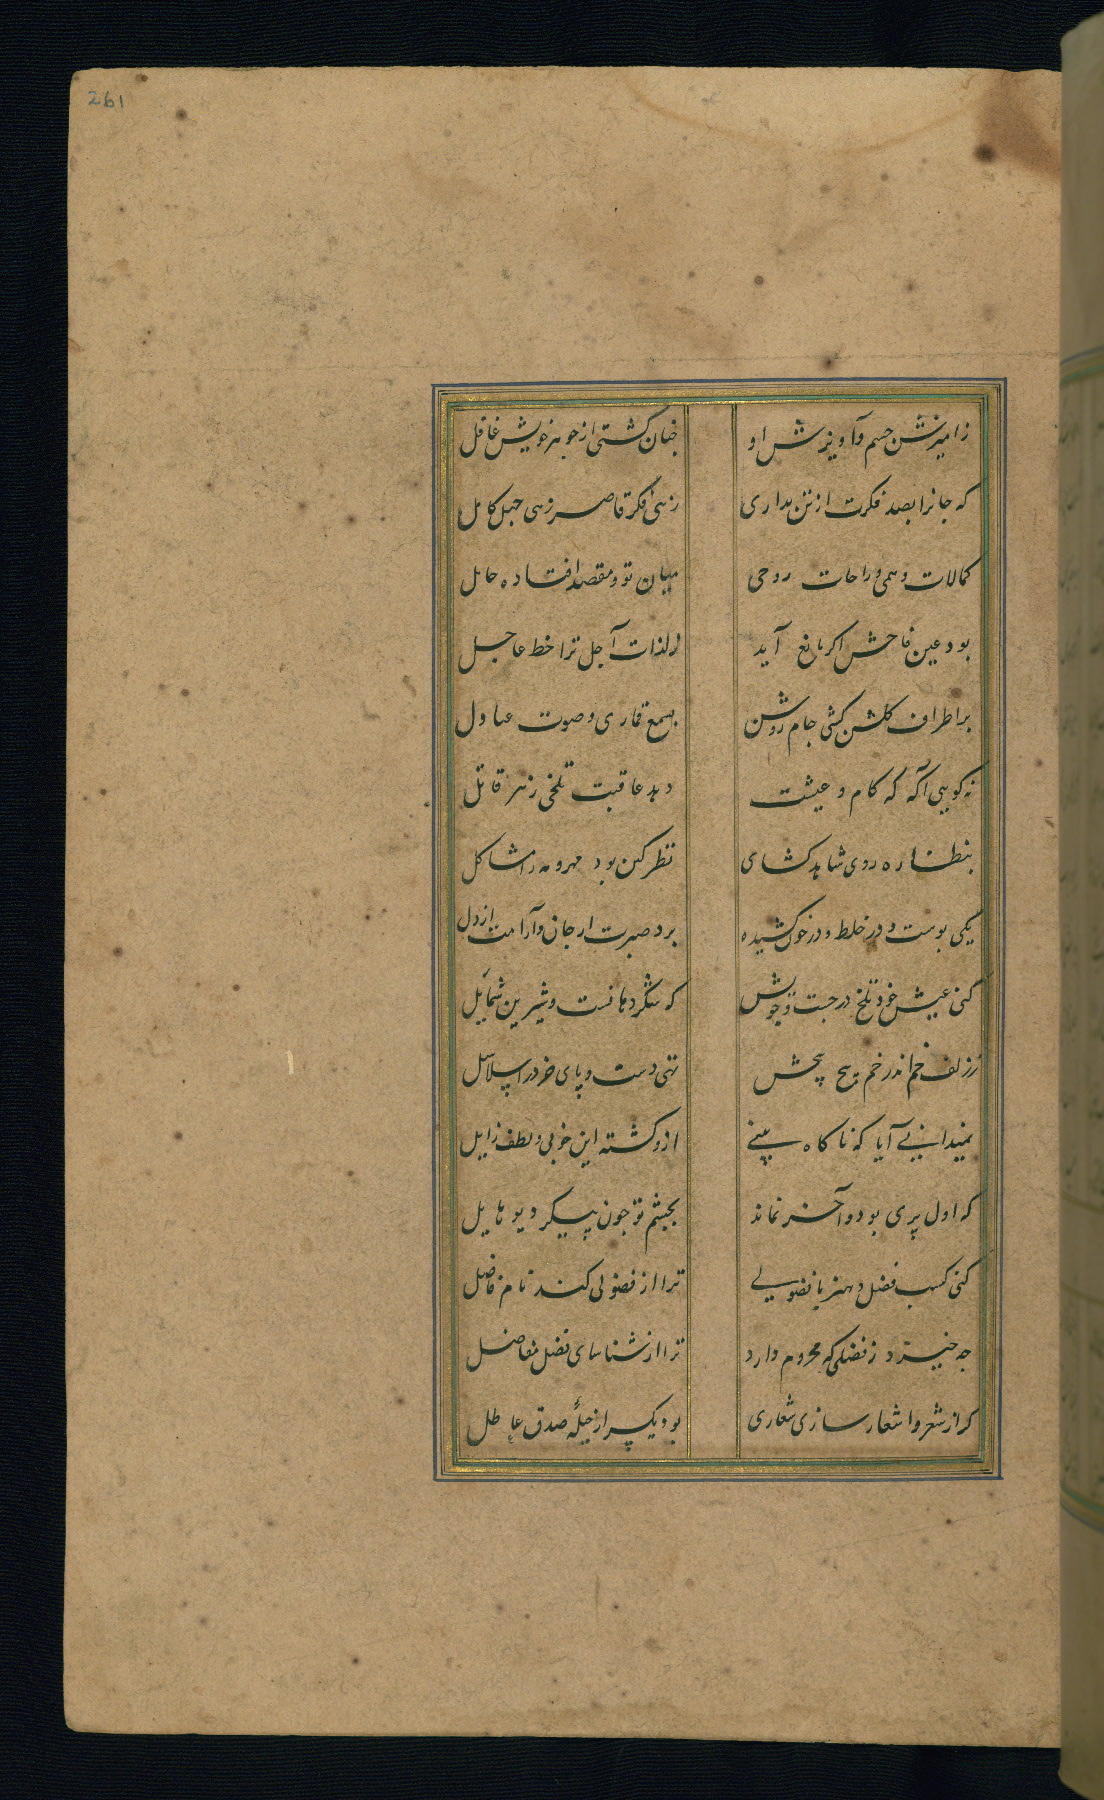 261
ز آمیزش جسم و آویزش او چنان گشتی از جوهر خویش غافل
که جانرا بصد فکرت از تن بداری زهی فکر قاصر زهی جهل کامل
کمالات وهمی و راحات روحی میان تو و مقصد افتاده حایل
بود عین فاحش اکر مانع آید از لذات آجل ترا خط عاجل
بر اطراف کلشن کشی جام روشن بسمع قماری و صوت عنادل
نه کویی آکه که کام و عیشت دهد عاقبت تلخی زهر قاتل
بنظاره روی شاهد کشای نظر کین بود مهر و مه را مشاکل
یکی بوست و در خلط و در خون کشیده برد صبرت از جان و آرامت از دل
کنی عیش خود تلخ در جست و جویش که شکر دهانست و شیرین شمایل
ز زلف خم اندر خم پیچ پیچش نهی دست و پای خرد را سلاسل
نمیدانی آیا که ناکاه بینی ازو کشته این خوبی و لطف زایل
که اول پری بود و آخر نماند بچشم تو جون پیکر دیو هایل
کنی کسب فضل و هنر یا فضولی ترا از فضولی کند نام فاضل
چه خیزد ز فضلی که محروم دارد ترا از شناسای فضل مفاضل
کر از شعر و اشعار سازی شعاری بود یکسر از حیله صدق عاطل